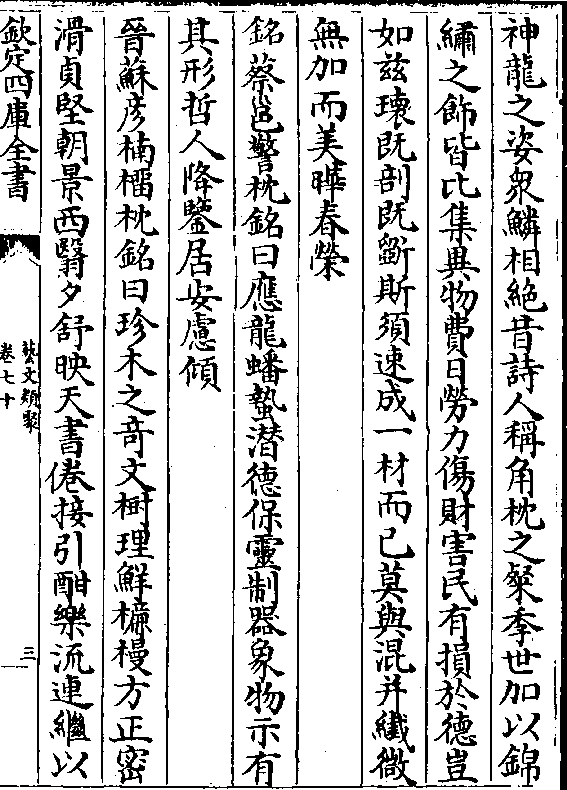 神龍之姿衆鱗相絶昔詩人稱角枕之粲季世加以錦
繡之飾皆比集異物費日勞力傷財害民有損於德豈
如兹瓌既剖既斵斯須速成一材而已莫與混并纎微
無加而美曄春榮
銘蔡邕警枕銘曰應龍蟠蟄潜德保靈制器象物示有
其形哲人降鑒居安慮傾
晉蘇彦楠榴枕銘曰珍木之竒文樹理鮮櫋稷方正密
滑貞堅朝景西翳夕舒映天書倦接引酣樂流連繼以
欽定四庫全書
藝文類聚
卷七十
三